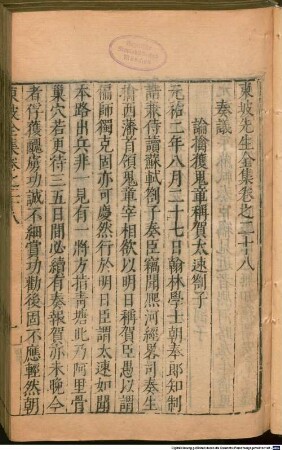 東坡先生全集卷之二十八
奏議
論擒獲鬼章稱賀太速劄子
元祐二年八月二十七日翰林學士朝奉郎知制
誥兼侍讀蘇軾劄子奏臣竊聞熈河經畧司奏生
擒西蕃首領鬼章宰相欲以明日稱賀臣愚以謂
偏師獨克固亦可慶然行於明日臣謂太速如聞
本路出兵非一見有一將方指青塘此乃阿里骨
巢穴若更待三五日間必續有奏報賀亦未晚今
者俘獲醜虜功誠不細賞功勸後固不應輕然朝
東坡全集卷之二十八
一